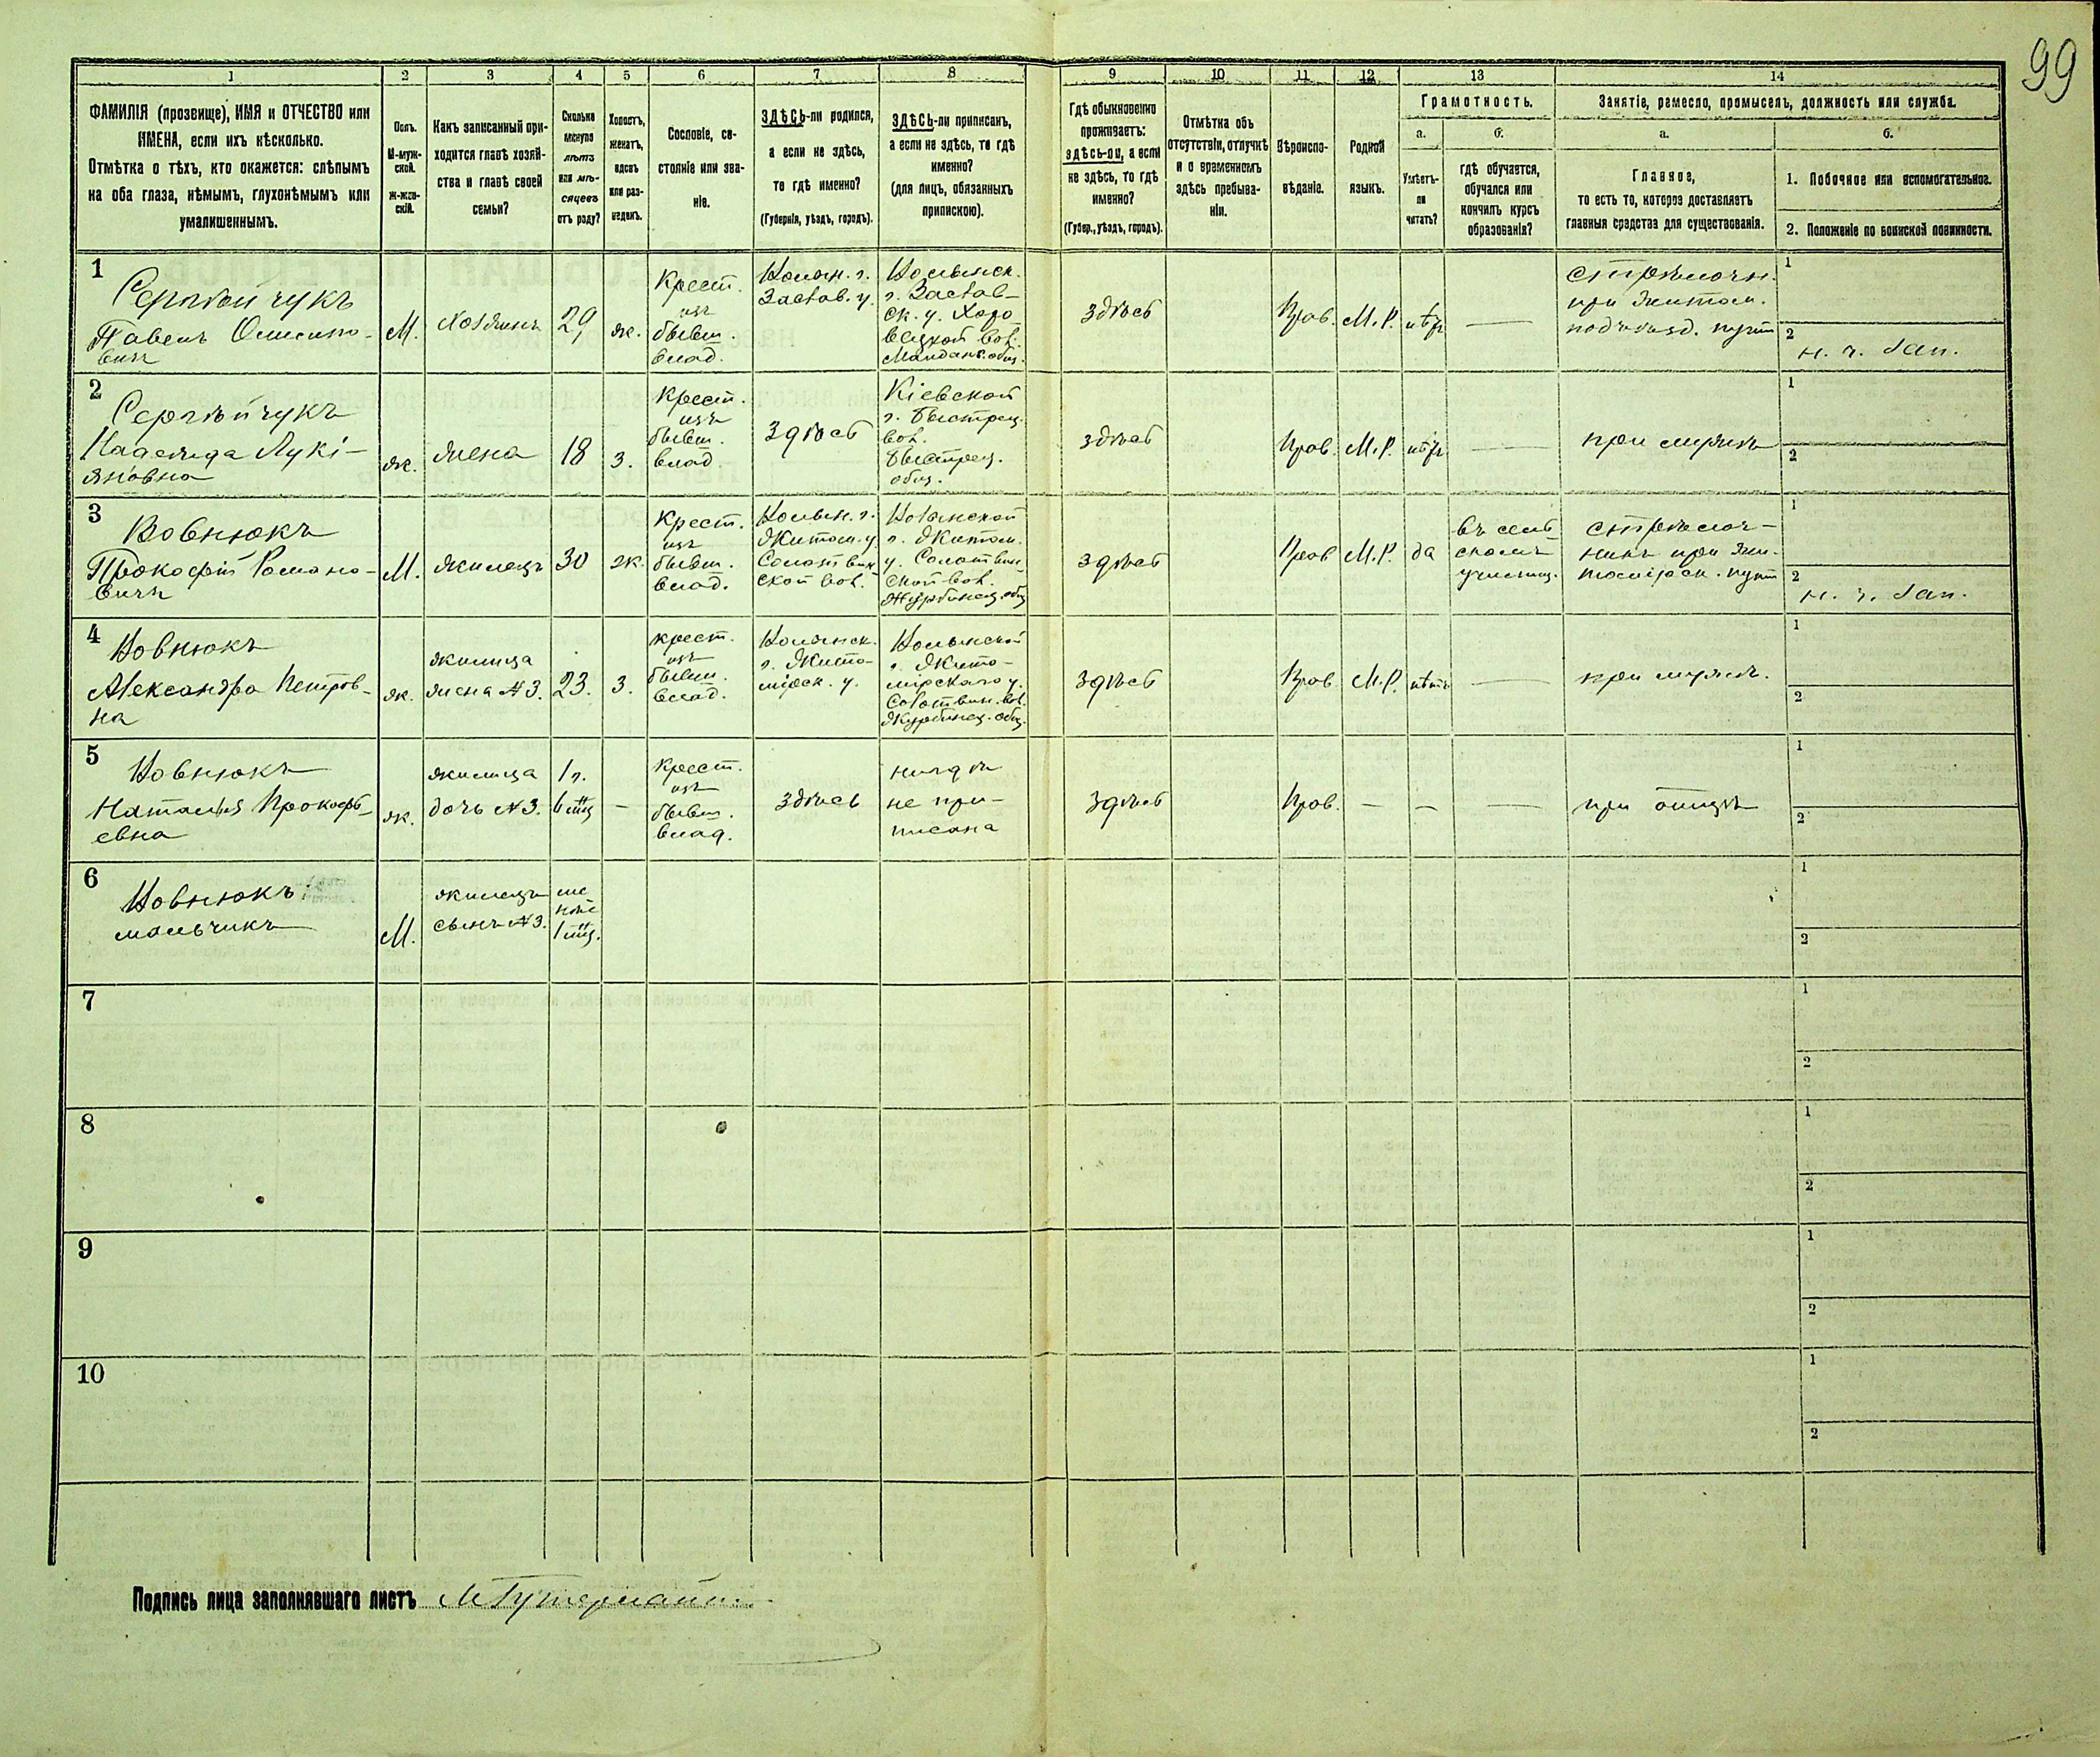 99
1 2 3 4 5 6 7 8 9 10 11 12 13 14
ФАМИЛІЯ (прозвище), ИМЯ и ОТЧЕСТВО или
ИМЕНА, если ихъ нѣсколько.
Отмѣтка о тѣхъ, кто окажется: слѣпымъ
на оба глаза, нѣмымъ, глухонѣмымъ или
умалишеннымъ.
Полъ.
М-муж-
ской.
Ж-жен-
скій.
Какъ записанный при-
ходится главѣ хозяй-
ства и главѣ своей
семьи?
Сколько
минуло
лѣтъ
или мѣ-
сяцевъ
отъ роду?
Холостъ,
женатъ,
вдовъ
или раз-
веденъ.
Сословіе, со-
стояніе или зва-
ніе.
ЗДѢСЬ-ли родился,
а если не здѣсь,
то гдѣ именно?
(Губернія, уѣздъ, городъ).
ЗДѢСЬ-ли приписанъ,
а если не здѣсь, то гдѣ
именно?
(для лицъ, обязанныхъ
припискою).
Гдѣ обыкновенно
проживаетъ:
здѣсь-ли, а если
не здѣсь, то гдѣ
именно?
(Губер., уѣздъ, городъ).
Отмѣтка объ
отсутствіи, отлучкѣ
и о временномъ
здѣсь пребыва-
ніи.
Вѣроиспо-
вѣданіе.
Родной
языкъ.
Грамотность.
а.
Умѣетъ-
ли
читать?
б.
гдѣ обучается,
обучался или
кончилъ курсъ
образованія?
Занятіе, ремесло, промыселъ, должность или служба.
а.
Главное,
то есть то, которое доставляетъ
главныя средства для существованія.
б.
1. Побочное или вспомогательное.
2. Положеніе по воинской повинности.
1
Сергѣйчукъ
Павелъ
вичъ
М.
хозяинъ
29
ж.
Крест.
изъ
бывш.
влад.
Волын. г.
Заслав. у.
Волынск.
г. Заслав-
ск. у. Хоро
вецкой вол.
Майдан. общ.
здѣсь
Прав.
М.Р.
нѣтъ
—
стрѣлочн.
при Житом.
подъѣзд. пути
1
2
н. ч. зап.
2
Сергѣйчукъ
Надежда Лукі-
яновна
ж.
жена
18
з.
Крест.
изъ
бывш.
влад.
здѣсь
Кіевской
г. Быстрец.
вол.
Быстрец.
общ.
здѣсь
Прав.
М.Р.
нѣтъ
—
при мужѣ
1
2
3
Вовнюкъ
Прокофій Романо-
вичъ
М.
жилецъ
30
ж.
Крест.
изъ
бывш.
влад.
Волын. г.
Житом. у.
Солотвин
ской вол.
Волынской
г. Житом.
у. Солотвин
ской вол.
Журбинец. общ
здѣсь
Прав
М.Р.
да
въ сель
скомъ
училищ.
стрѣлоч-
никъ при Жи-
томірск. пути
1
2
н. ч. зап.
4
Вовнюкъ
Александра Петров-
на
ж.
жилица
жена №3.
23.
з.
крест.
изъ
бывш.
влад.
Волынск.
г. Жито-
мірск. у.
Волынской
г. Жито-
мірскаго у.
Солотвин. вол.
Журбинец. общ.
здѣсь
Прав
М.Р.
нѣтъ
—
при мужѣ.
1
2
5
Вовнюкъ
Наталья Прокофь-
евна
ж.
жилица
дочь №3.
1 г.
6 мц
—
Крест.
изъ
бывш.
влад.
здѣсь
нигдѣ
не при-
писана
здѣсь
Прав.
—
—
—
при отцѣ
1
2
6
Вовнюкъ
мальчикъ
М.
жилецъ
сынъ №3.
ме
нѣе
1 мц.
1
2
7
1
2
8
1
2
9
1
2
10
1
2
Подпись лица заполнявшаго листъ